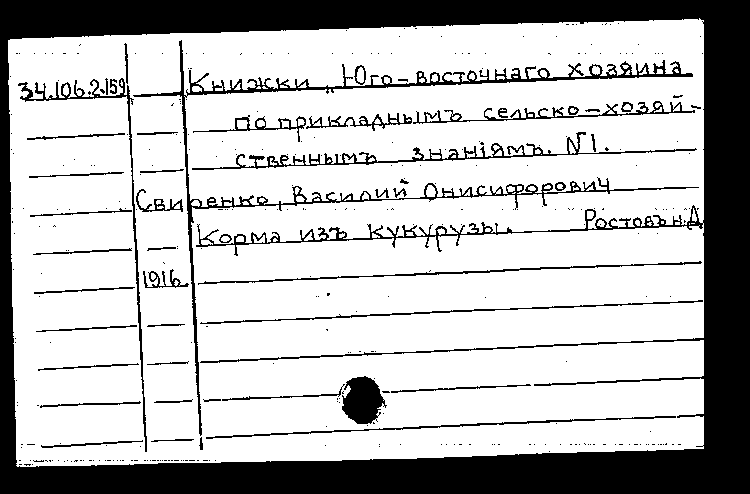 34.106.2.159 Книжки „Юго-восточнаго хозяина
по прикладнымъ сельско-хозяй-
ственнымъ знанiямъ. №1.
Свиренко, Василий Онисифорович
Корма изъ кукурузы. Ростовъ н.Д.
1916